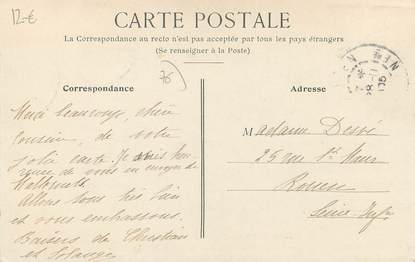 12.-€
CARTE POSTALE
La Correspondance au recto n'est pas acceptée par tous les pays étrangers
(Se renseigner à la Poste)
76
Correspondance
Merci beaucoup, chère
cousine, de votre
jolie carte. Je
de vous en envoyer de
Allons tous très bien
et vous embrassons.
Baisers de Christian
et Solange
Adresse
Madame
25 rue St Maur
Rouen
Seine Infre